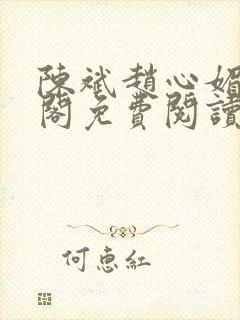 陳斌趙心媚
閣免費閱讀
何惠紅